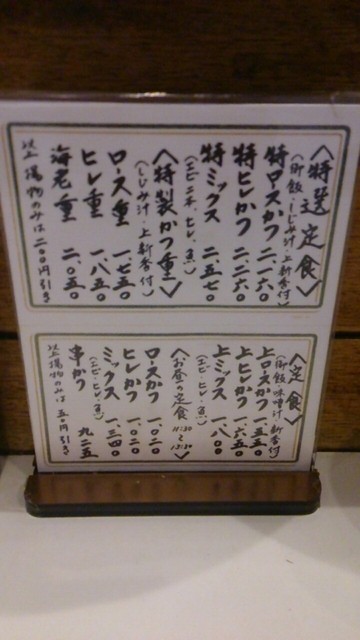 〈特選定食〉
(御飯・しじみ汁・上新香付)
特ロースかつ 二、一六〇
特ヒレかつ 二、二六〇
特ミックス 二、五七〇
(エビ二本、ヒレ、魚)
〈特製かつ重〉
(しじみ汁・上新香付)
ロース重 一、七五〇
ヒレ重 一、八五〇
海老重 二、〇五〇
以上揚物のみは二〇〇円引き
〈定食〉
(御飯・味噌汁・新香付)
上ロースかつ 一、五五〇
上ヒレかつ 一、六五〇
上ミックス 一、八〇〇
(エビ・ヒレ・魚)
〈お昼の定食 11:30〜13:30〉
ロースかつ 一、〇二〇
ヒレかつ 一、〇二〇
ミックス 一、二四〇
(エビ・ヒレ・魚)
串かつ 九二五
以上揚物のみは五〇円引き